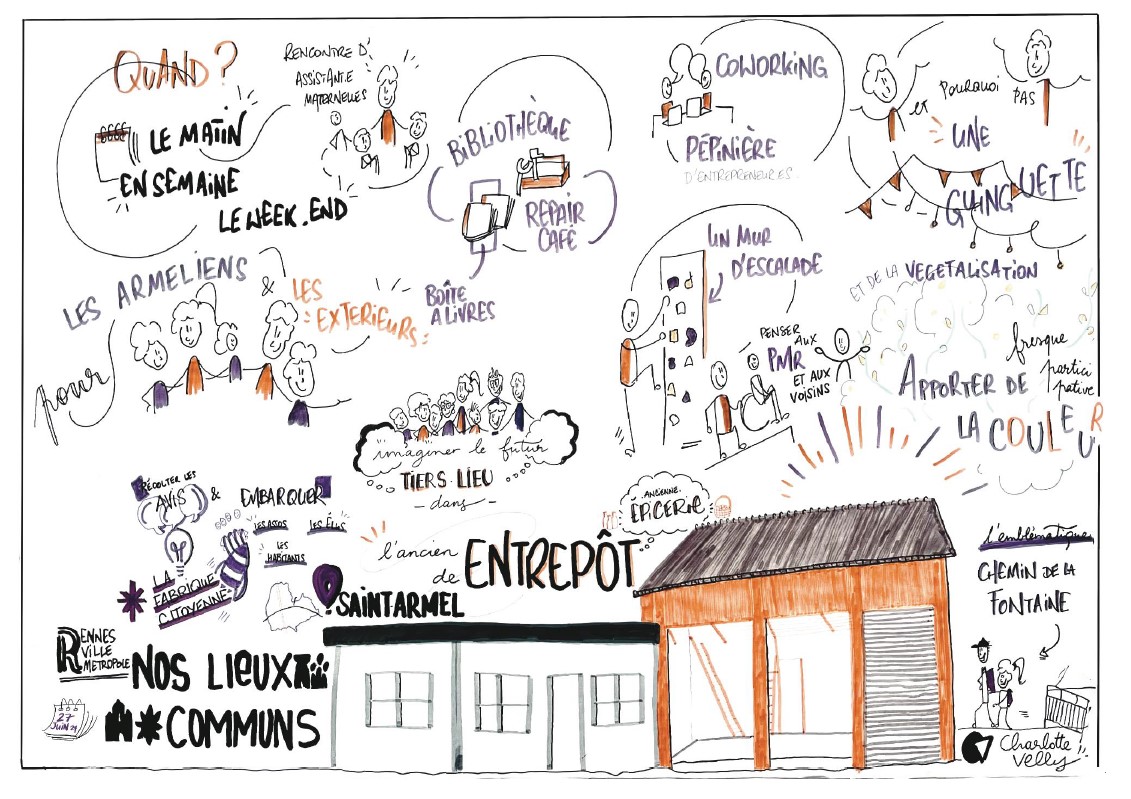 QUAND ?
LE MATIN
EN SEMAINE
LE WEEK.END
RENCONTRE D'
ASSISTANTE
MATERNELLES
BIBLIOTHÈQUE
REPAIR
CAFÉ
BOÎTE
A LIVRES
COWORKING
PÉPINIÈRE
D'ENTREPRENEUR.ES.
et POURQUOI PAS
UNE
GUINGUETTE
LES ARMELIENS
& LES
EXTERIEURS
pour
UN MUR
D'ESCALADE
PENSER
AUX
PMR
ET AUX
VOISINS
ET DE LA VEGETALISATION
fresque
partici
pative
APPORTER DE
LA COULEUR
imaginer le futur
TIERS LIEU
- dans -
l'ancien
de ENTREPÔT
SAINT ARMEL
ANCIENNE
ÉPICERIE
RÉCOLTER LES
AVIS
& EMBARQUER
LES ASSOS LES ÉLUS
LES
HABITANTS
LA
FABRIQUE
CITOYENNE
RENNES
VILLE
METROPOLE
NOS LIEUX
COMMUNS
27
JUIN 24
l'emblématique
CHEMIN DE LA
FONTAINE
Charlotte
Velly